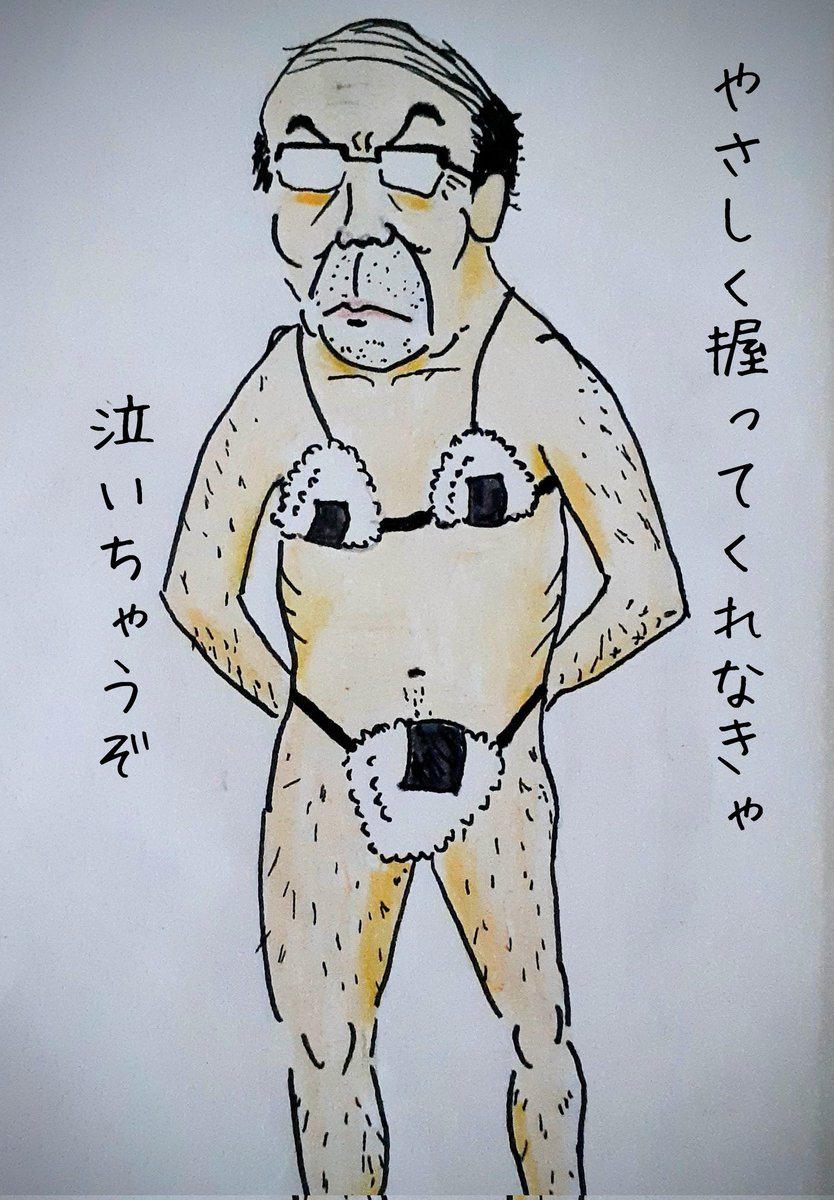 やさしく握ってくれなきゃ
泣いちゃうぞ